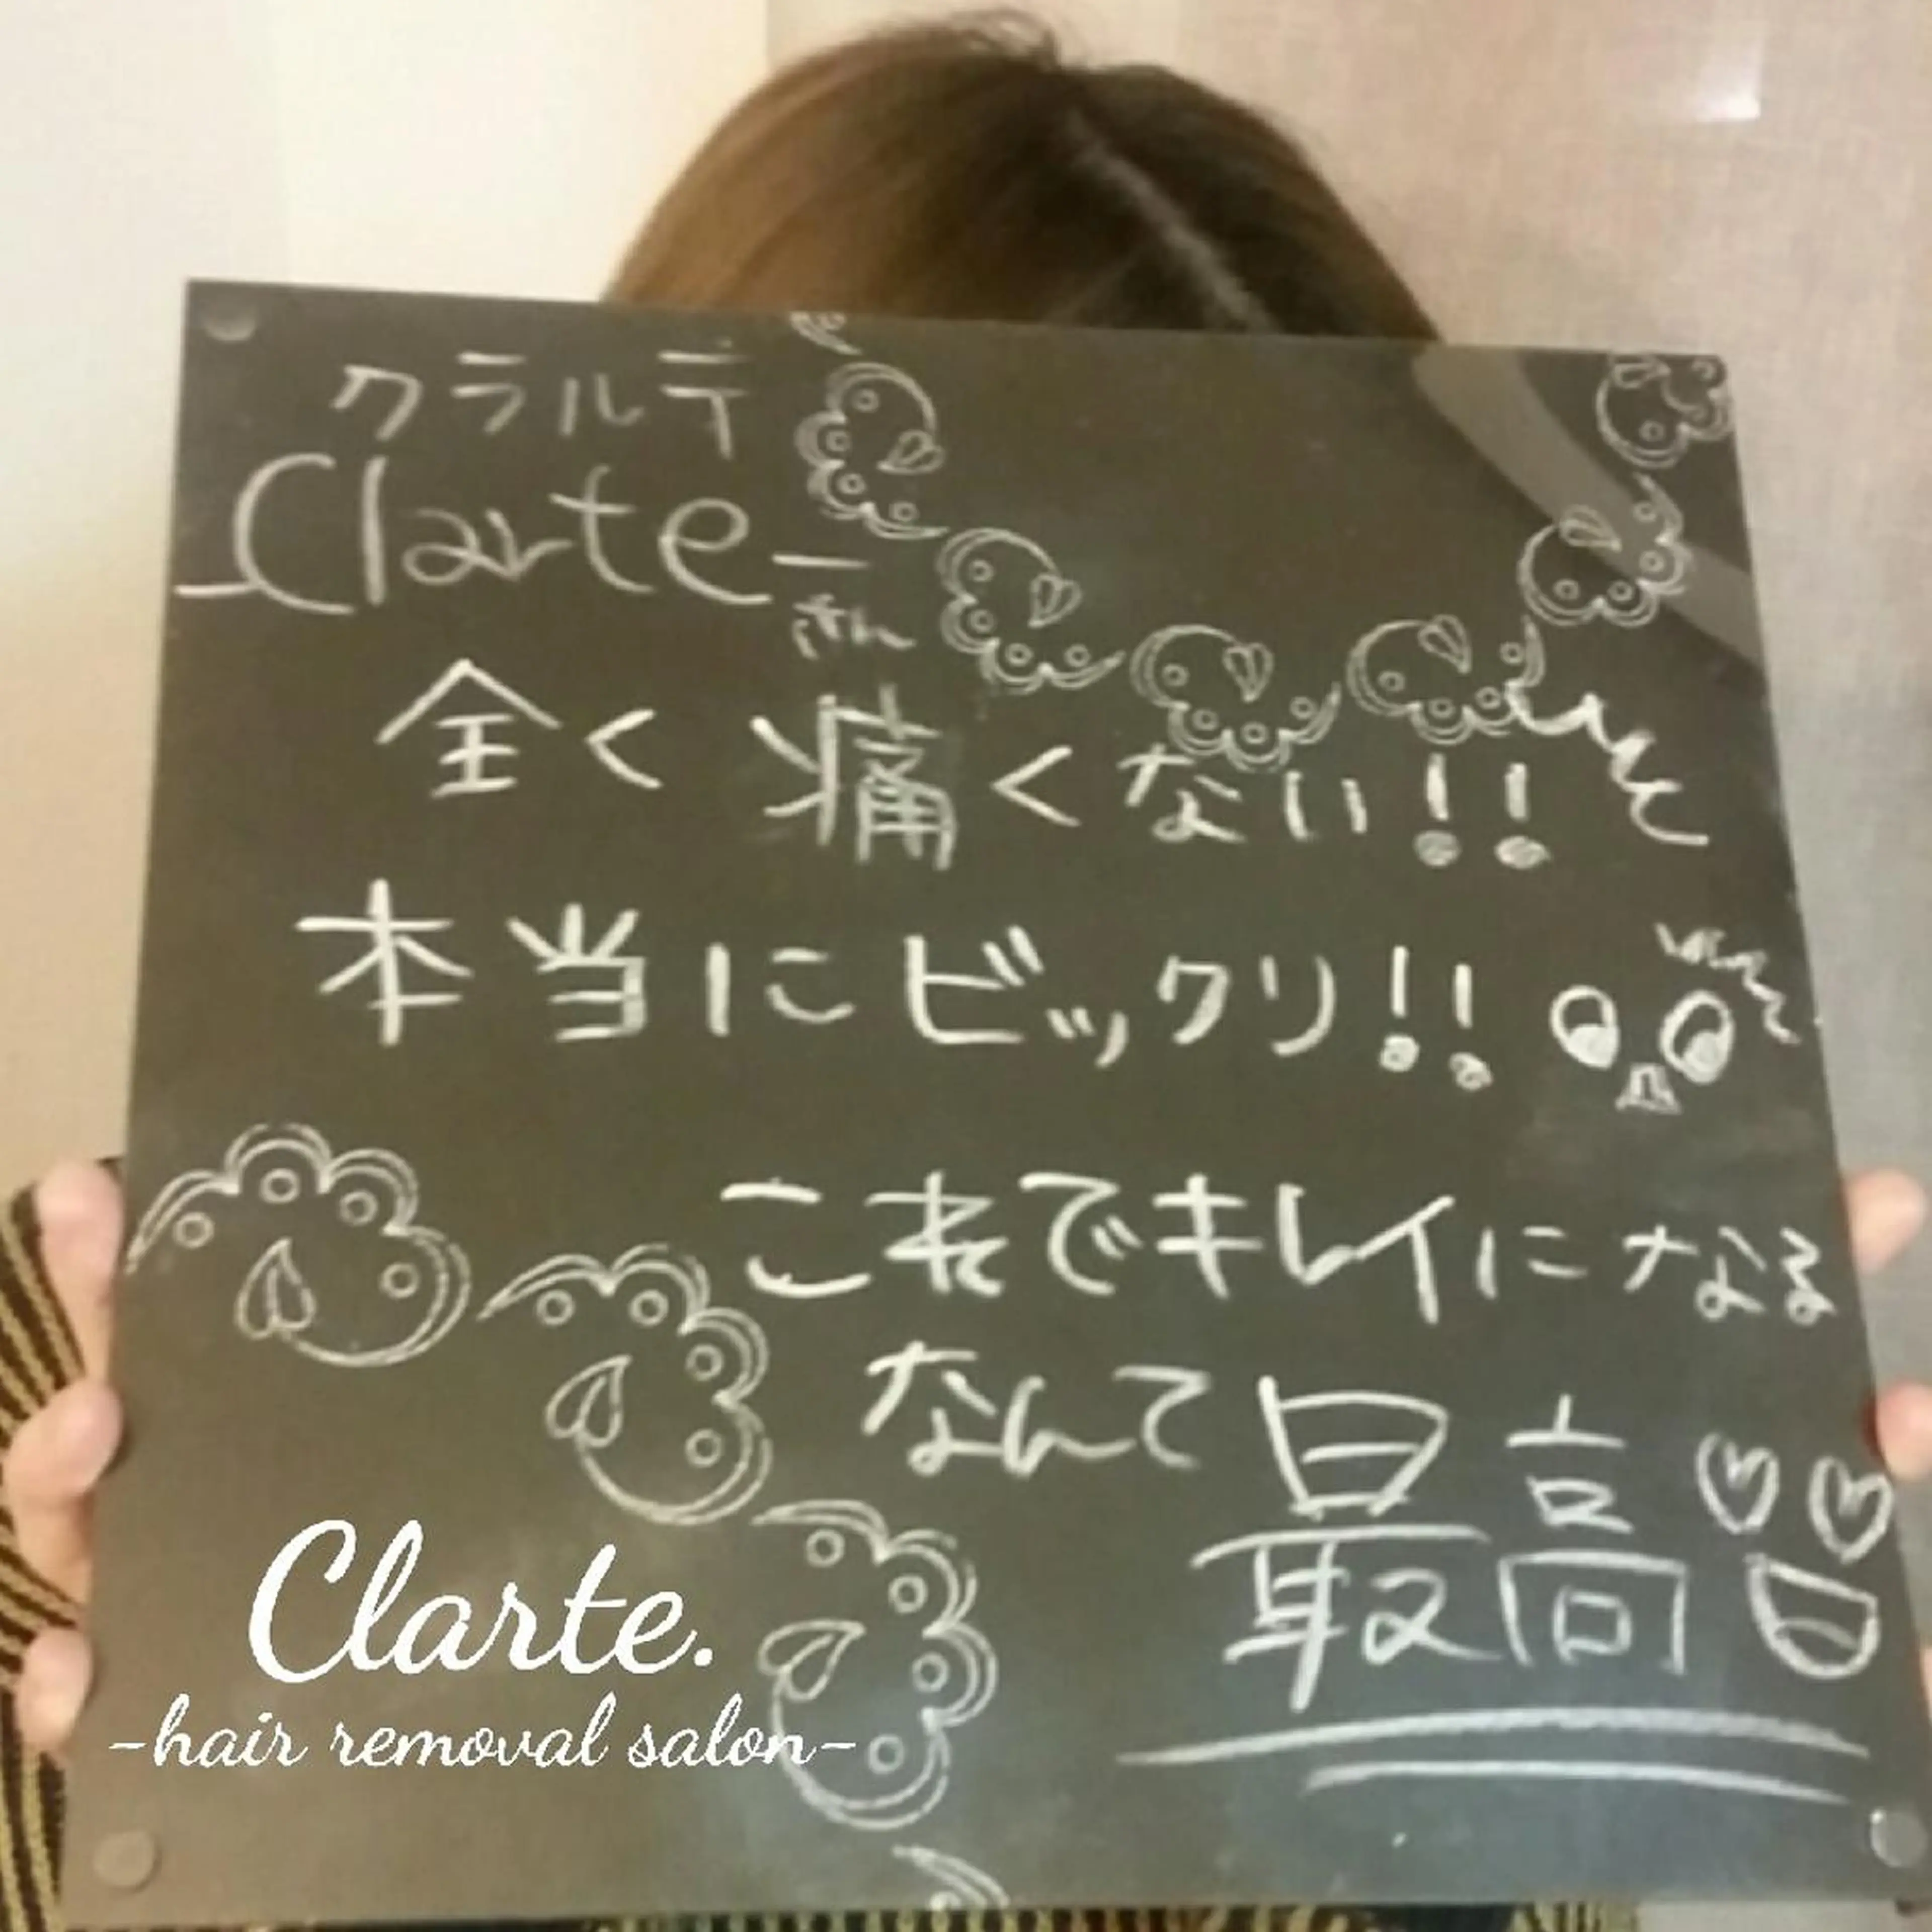 クラルテ
Clarte
さん
全く痛くない!!
本当にビックリ!!
これでキレイになる
なんて最高
Clarte.
-hair removal salon-